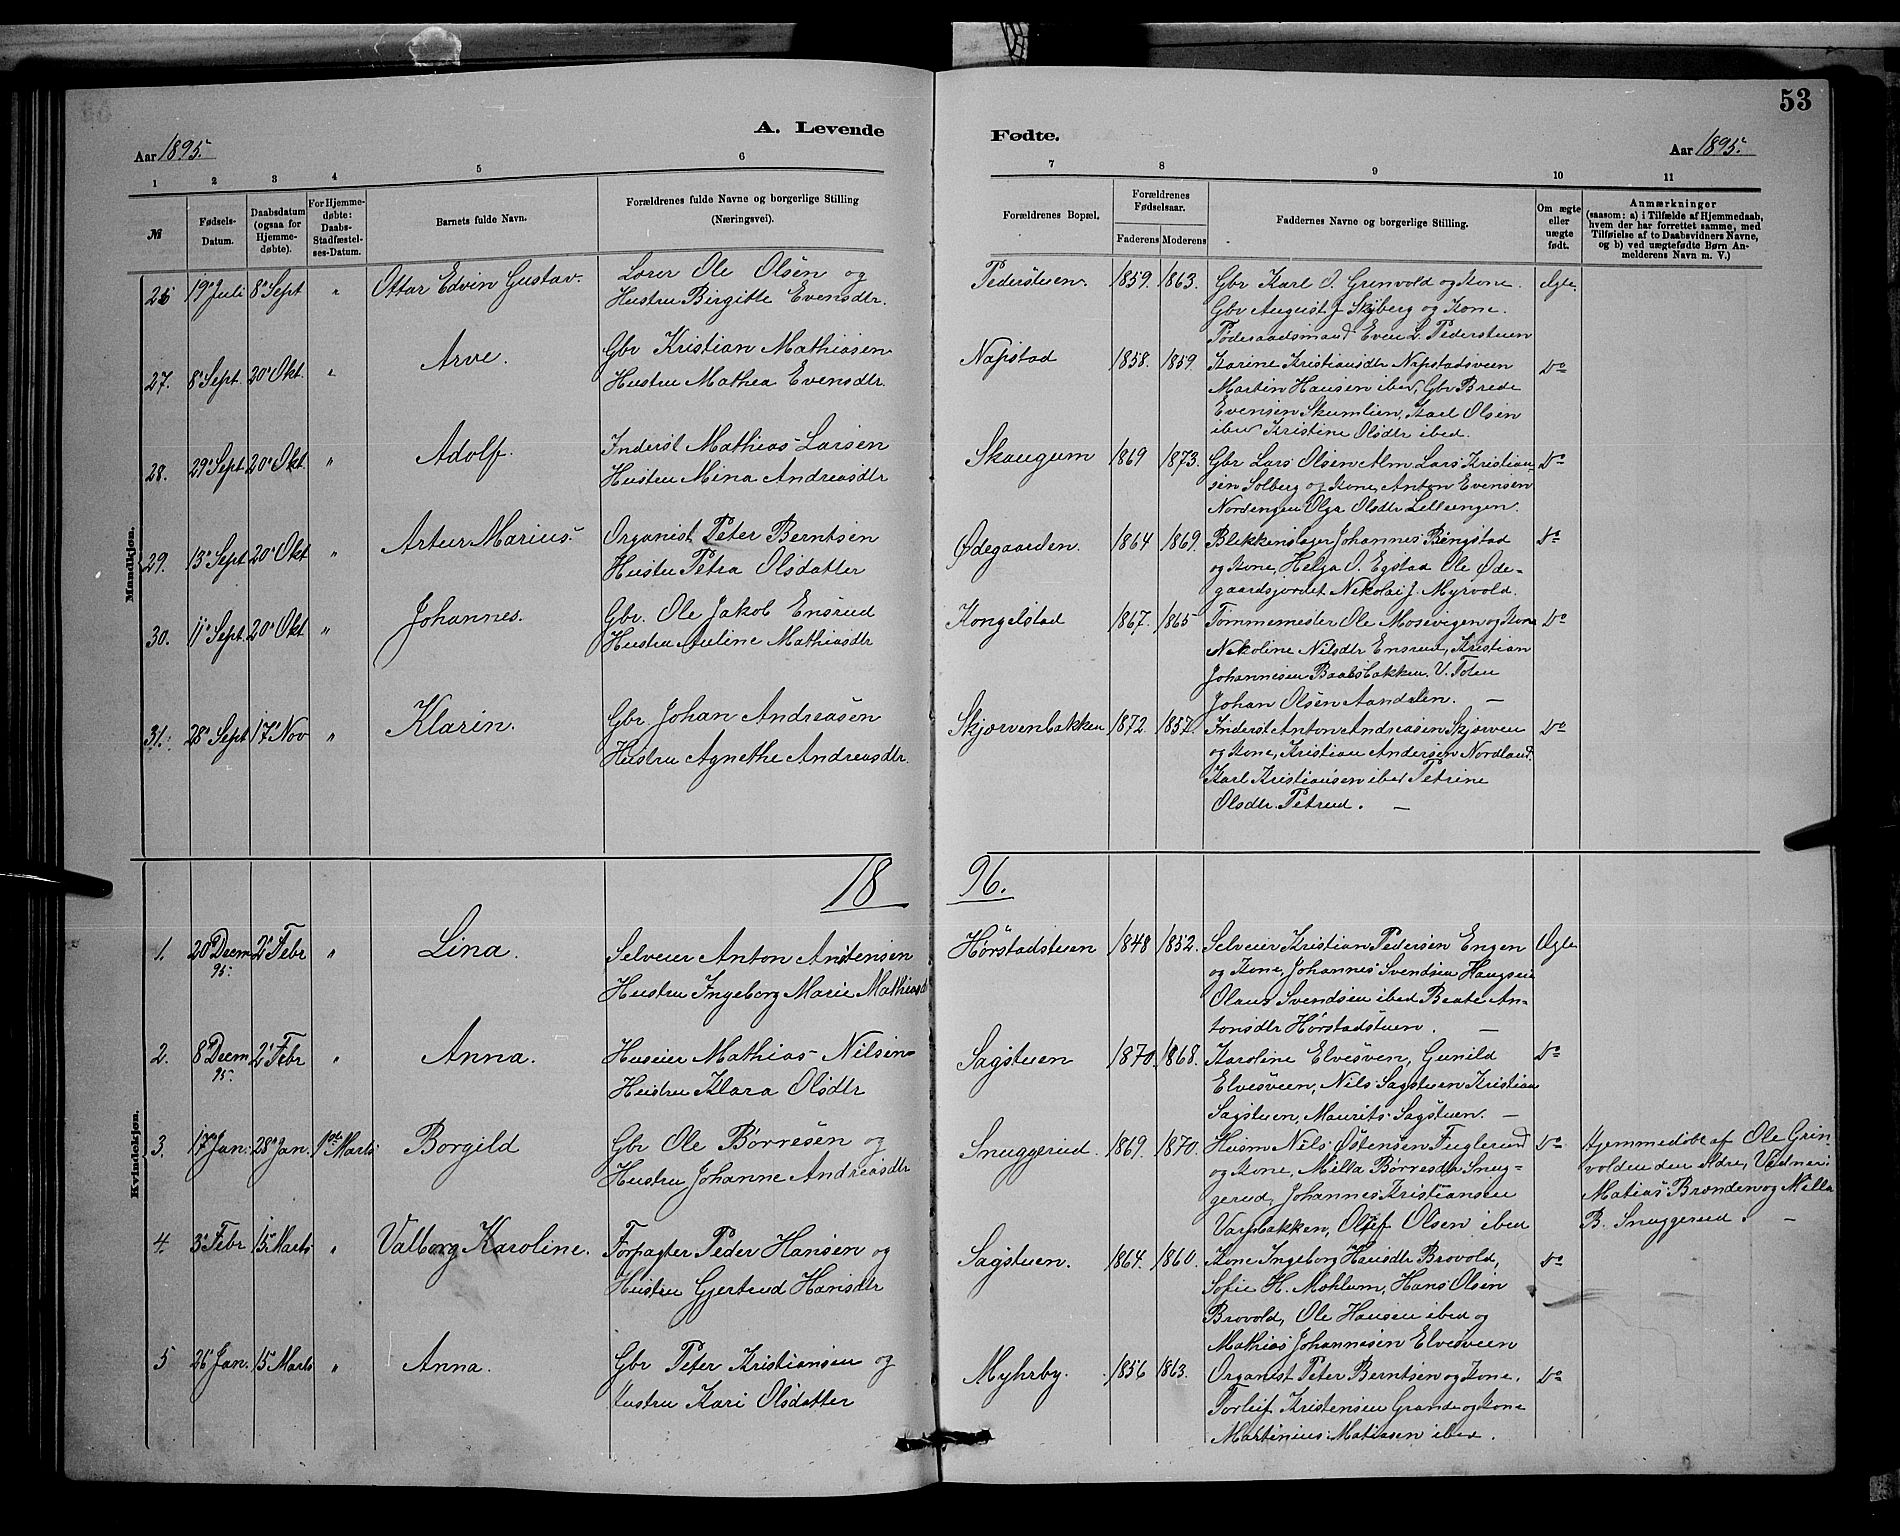 53
A. Levende
Fødte.
Aar 1895.
Aar 1895.
1 2 3 4 5 6 7 8 9 10 11
№
Fødsels-
Datum.
Daabsdatum
(ogsaa for
Hjemme-
døbte).
For Hjemme-
døbte:
Daabs-
Stadfæstel-
ses-Datum.
Barnets fulde Navn.
Forældrenes fulde Navne og borgerlige Stilling
(Næringsvei).
Forældrenes Bopæl.
Forældrenes
Fødselsaar.
Faderens Moderens
Faddernes Navne og borgerlige Stilling.
Om ægte
eller
uægte
født.
Anmærkninger
(saasom: a) i Tilfælde af Hjemmedaab,
hvem der har forrettet samme, med
Tilføielse af to Daabsvidners Navne,
og b) ved uægtefødte Børn An-
melderens Navn m. V.)
Mandkjøn.
26 19 Juli 8 Sept " Ottar Edvin Gustav.
Lærer Ole Olsen og
Hustru Birgitte Evensdtr.
Pederstuen. 1859. 1863.
Gbr Karl O. Grinvold og Kone.
Gbr August J Skjberg og Kone.
Føderaadsmand Even L. Pederstuen
Ægte.
27. 8 Sept. 20 Okt. " Arve.
Gbr Kristian Mathiasen
Hustru Mathea Evensdtr.
Napstad 1858. 1859.
Karine Kristiansdtr Napstadsveen
Martin Hansen ibed, Gbr Brede
Evensen Skumlien, Karl Olsen
ibed Kristine Olsdtr ibed.
Do
28. 29 Sept 20 Okt. " Adolf.
Inderst Mathias Larsen
Hustru Mina Andreasdtr
Skaugum 1869 1873.
Gbr Lars Olsen Alm Lars Kristian-
sen Solberg og Kone, Anton Evensen
Nordengen Olga Olsdtr Lilleengen.
Do
29. 13 Sept 20 Okt " Artur Marius
Organist Peter Berntsen
Hustru Petra Olsdatter
Ødegaarden. 1864 1869.
Blikkenslager Johannes Bingstad
og Kone, Helga O. Egstad Ole Øde-
gaardsjordet Nikolai J. Myrvold.
Do
30. 11 Sept. 20 Okt " Johannes.
Gbr. Ole Jakob Ensrud
Hustru Auline Mathiasdtr
Kongelstad 1867. 1865
Tømmemester Ole Mosevigen og Kone
Nikoline Nilsdtr Ensrud, Kristian
Johannesen Baalsbakken V. Toten
Johan Olsen Aandalen. —
Do
31. 28 Sept 17 Nov " Klarin.
Gbr. Johan Andreasen
Hustru Agnethe Andreasdtr.
Skjærvenbakken 1872. 1857.
Inderst Anton Andreasen Skjærven
og Kone, Kristian Andersen Nordland.
Karl Kristiansen ibed Petrine
Olsdtr. Petrud. —
Do
18 96.
Kvindekjøn.
1. 20 Decm 95. 2 Febr " Lina.
Selveier Anton Antensen
Hustru Ingeborg Marie Mathiasd
Hørstadstuen 1848 1852.
Selveier Kristian Pedersen Engen
og Kone, Johannes Svendsen Haugsen
Olaus Svendsen ibed Beate An-
tonsdtr Hørstadstuen. —
Ægte
2. 8 Decm 95. 2 Febr " Anna.
Huseier Mathias Nilsen
Hustru Klara Olsdtr
Sagstuen 1870. 1868.
Karoline Elvesven, Gunild
Elvesveen, Nils Sagstuen Kristian
Sagstuen, Maurits Sagstuen. —
Do
3. 17 Jan. 28 Jan. 1ste Marts Borgild
Gbr Ole Børresen og
Hustru Johanne Andreasdtr
Snuggerud. 1869. 1870.
Husm Nils Østensen Fuglerud
og Kone, Milla Børresdtr Snug-
gerud, Johannes Kristiansen
Varpbakken, Oluf Olsen ibed
Do
Hjemmedøbt af Ole Grin-
volden den Ældre, Vidner:
Matias Brænden og Milla
B. Snuggerud. —
4. 3 Febr 15 Marts " Valborg Karoline.
Forpagter Peder Hansen og
Hustru Gjertrud Hansdtr
Sagstuen. 1864. 1860.
Kone Ingeborg Hansdtr Brovold,
Sofie H. Mohlum, Hans Olsen
Brovold, Ole Hansen ibed og
Mathias Johannesen Elvesveen
Do
5 26 Jan. 15 Marts " Anna.
Gbr Peter Kristiansen og
Hustru Kari Olsdatter
Myhrby. 1856 1863.
Organist Peter Berntsen og Kone.
Torleif Kristensen Grande og Kone
Martinius Matiasen ibed.
Do